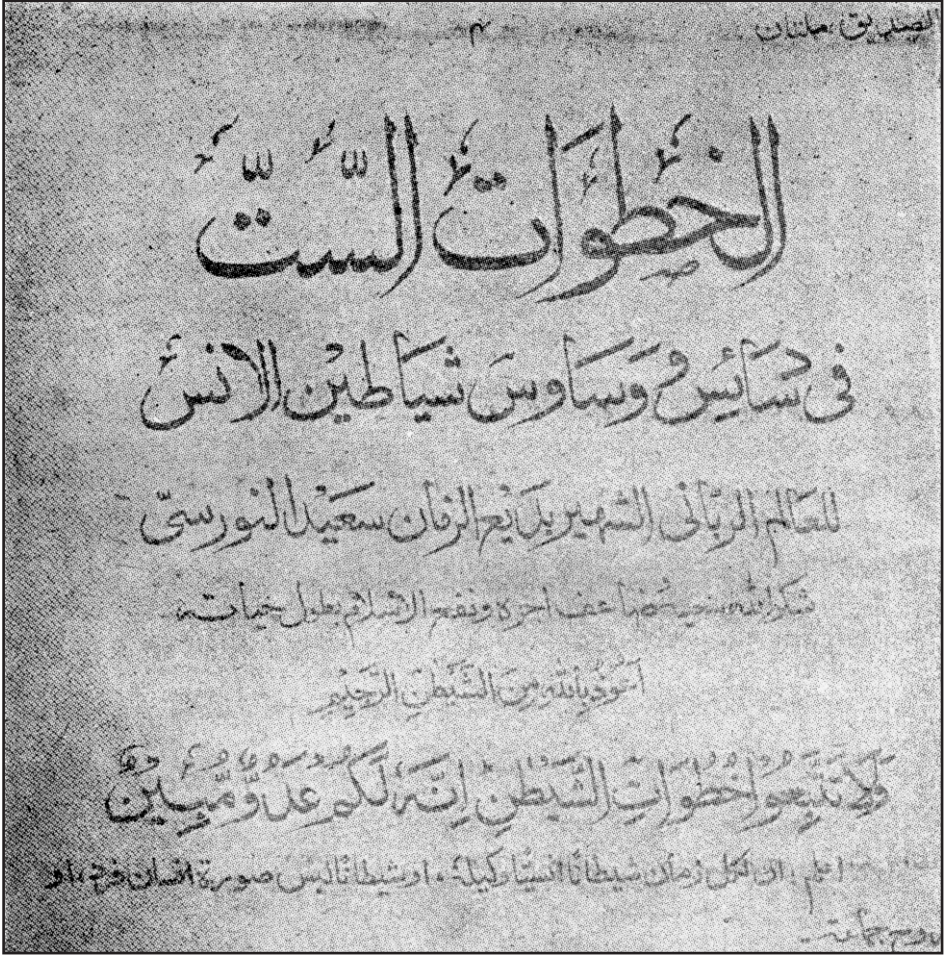 الصديق، ملتان
٣
الخُطُوَاتُ السِّتُّ
فى دَسَائِسِ وَوَسَاوِسَ شَيَاطِيْنِ الانسِ
للعَالم الربّانى الشهير بَدِيْع الزمان سعَيْد النورسىّ
شكر الله سعيه وضاعف اجره ونفع الاسلام بطول حياته
اَعُوْذُ بِاللّٰهِ مِنَ الشَّيْطٰنِ الرَّجِيْمِ
وَلَا تَتَّبِعُوا خُطُوَاتِ الشَّيْطٰنِ اِنَّهٗ لَكُمْ عَدُوٌّ مُّبِيْنٌ
اعلم، ان لكل زمان شيطانًا انسيًّا وكيله، او شيطانًا لبس صورة انسان فرد، او
روح جماعة